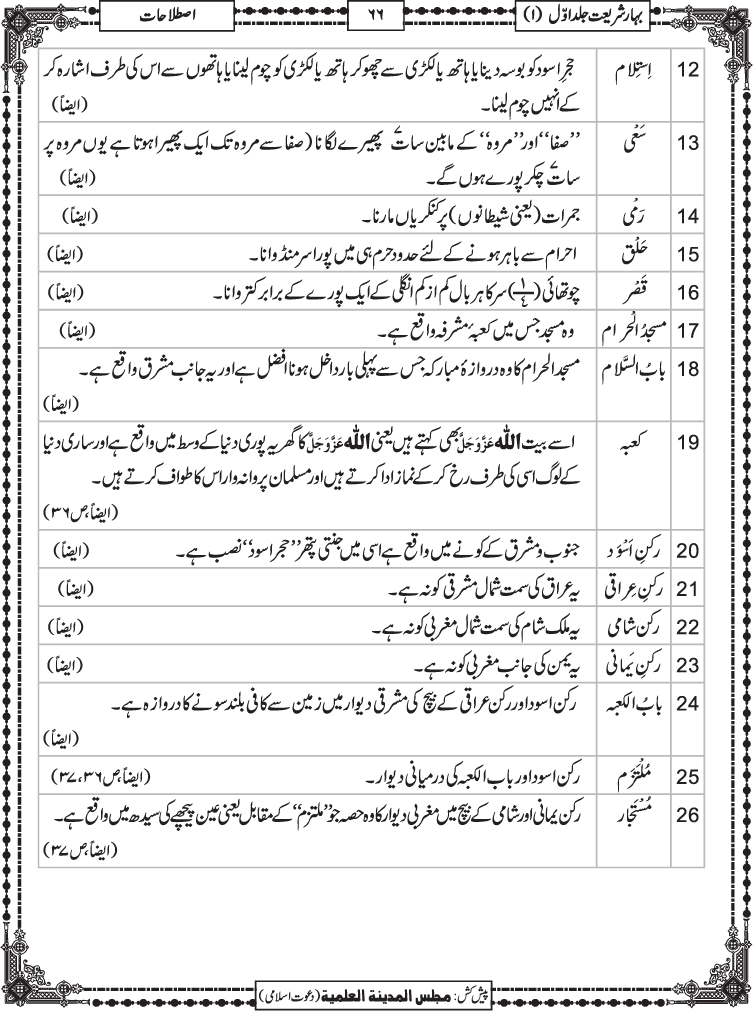 بہارِشریعت جلد اوّل (۱)
۶۶
اصطلاحات
12 اِستِلام حجرِ اسود کو بوسہ دینا یا ہاتھ یا لکڑی سے چھو کر ہاتھ یا لکڑی کو چوم لینا یا ہاتھوں سے اس کی طرف اشارہ کر
کے انہیں چوم لینا۔ (ایضاً)
13 سَعْی ’’صفا‘‘ اور ’’مروہ‘‘ کے مابین سات پھیرے لگانا (صفا سے مروہ تک ایک پھیرا ہوتا ہے یوں مروہ پر
سات چکر پورے ہوں گے۔ (ایضاً)
14 رَمْی جمرات (یعنی شیطانوں) پر کنکریاں مارنا۔ (ایضاً)
15 حَلْق احرام سے باہر ہونے کے لئے حدودِ حرم ہی میں پورا سر منڈوانا۔ (ایضاً)
16 قَصْر چوتھائی (۱/۴) سر کا ہر بال کم از کم انگلی کے ایک پورے کے برابر کتروانا۔ (ایضاً)
17 مسجدُ الْحرام وہ مسجد جس میں کعبۂ مشرفہ واقع ہے۔ (ایضاً)
18 بابُ السَّلام مسجد الحرام کا وہ دروازۂ مبارکہ جس سے پہلی بار داخل ہونا افضل ہے اور یہ جانب مشرق واقع ہے۔
(ایضاً)
19 کعبہ اسے بیت اللہ عَزَّوَجَلَّ بھی کہتے ہیں یعنی اللہ عَزَّوَجَلَّ کا گھر یہ پوری دنیا کے وسط میں واقع ہے اور ساری دنیا
کے لوگ اسی کی طرف رخ کر کے نماز ادا کرتے ہیں اور مسلمان پروانہ وار اس کا طواف کرتے ہیں۔
(ایضاً، ص ۳۶)
20 رکنِ اَسْوَد جنوب و مشرق کے کونے میں واقع ہے اسی میں جنتی پتھر ’’حجر اسود‘‘ نصب ہے۔ (ایضاً)
21 رکنِ عِراقی یہ عراق کی سمت شمال مشرقی کونہ ہے۔ (ایضاً)
22 رکنِ شامی یہ ملک شام کی سمت شمال مغربی کونہ ہے۔ (ایضاً)
23 رکنِ یَمانی یہ یمن کی جانب مغربی کونہ ہے۔ (ایضاً)
24 بابُ الکعبہ رکن اسود اور رکن عراقی کے بیچ کی مشرقی دیوار میں زمین سے کافی بلند سونے کا دروازہ ہے۔
(ایضاً)
25 مُلْتَزَم رکن اسود اور باب الکعبہ کی درمیانی دیوار۔ (ایضاً، ص ۳۶، ۳۷)
26 مُسْتَجار رکن یمانی اور شامی کے بیچ میں مغربی دیوار کا وہ حصہ جو ’’ملتزم‘‘ کے مقابل یعنی عین پیچھے کی سیدھ میں واقع ہے۔
(ایضاً، ص ۳۷)
پیش کش: مجلس المدینة العلمیة (دعوت اسلامی)